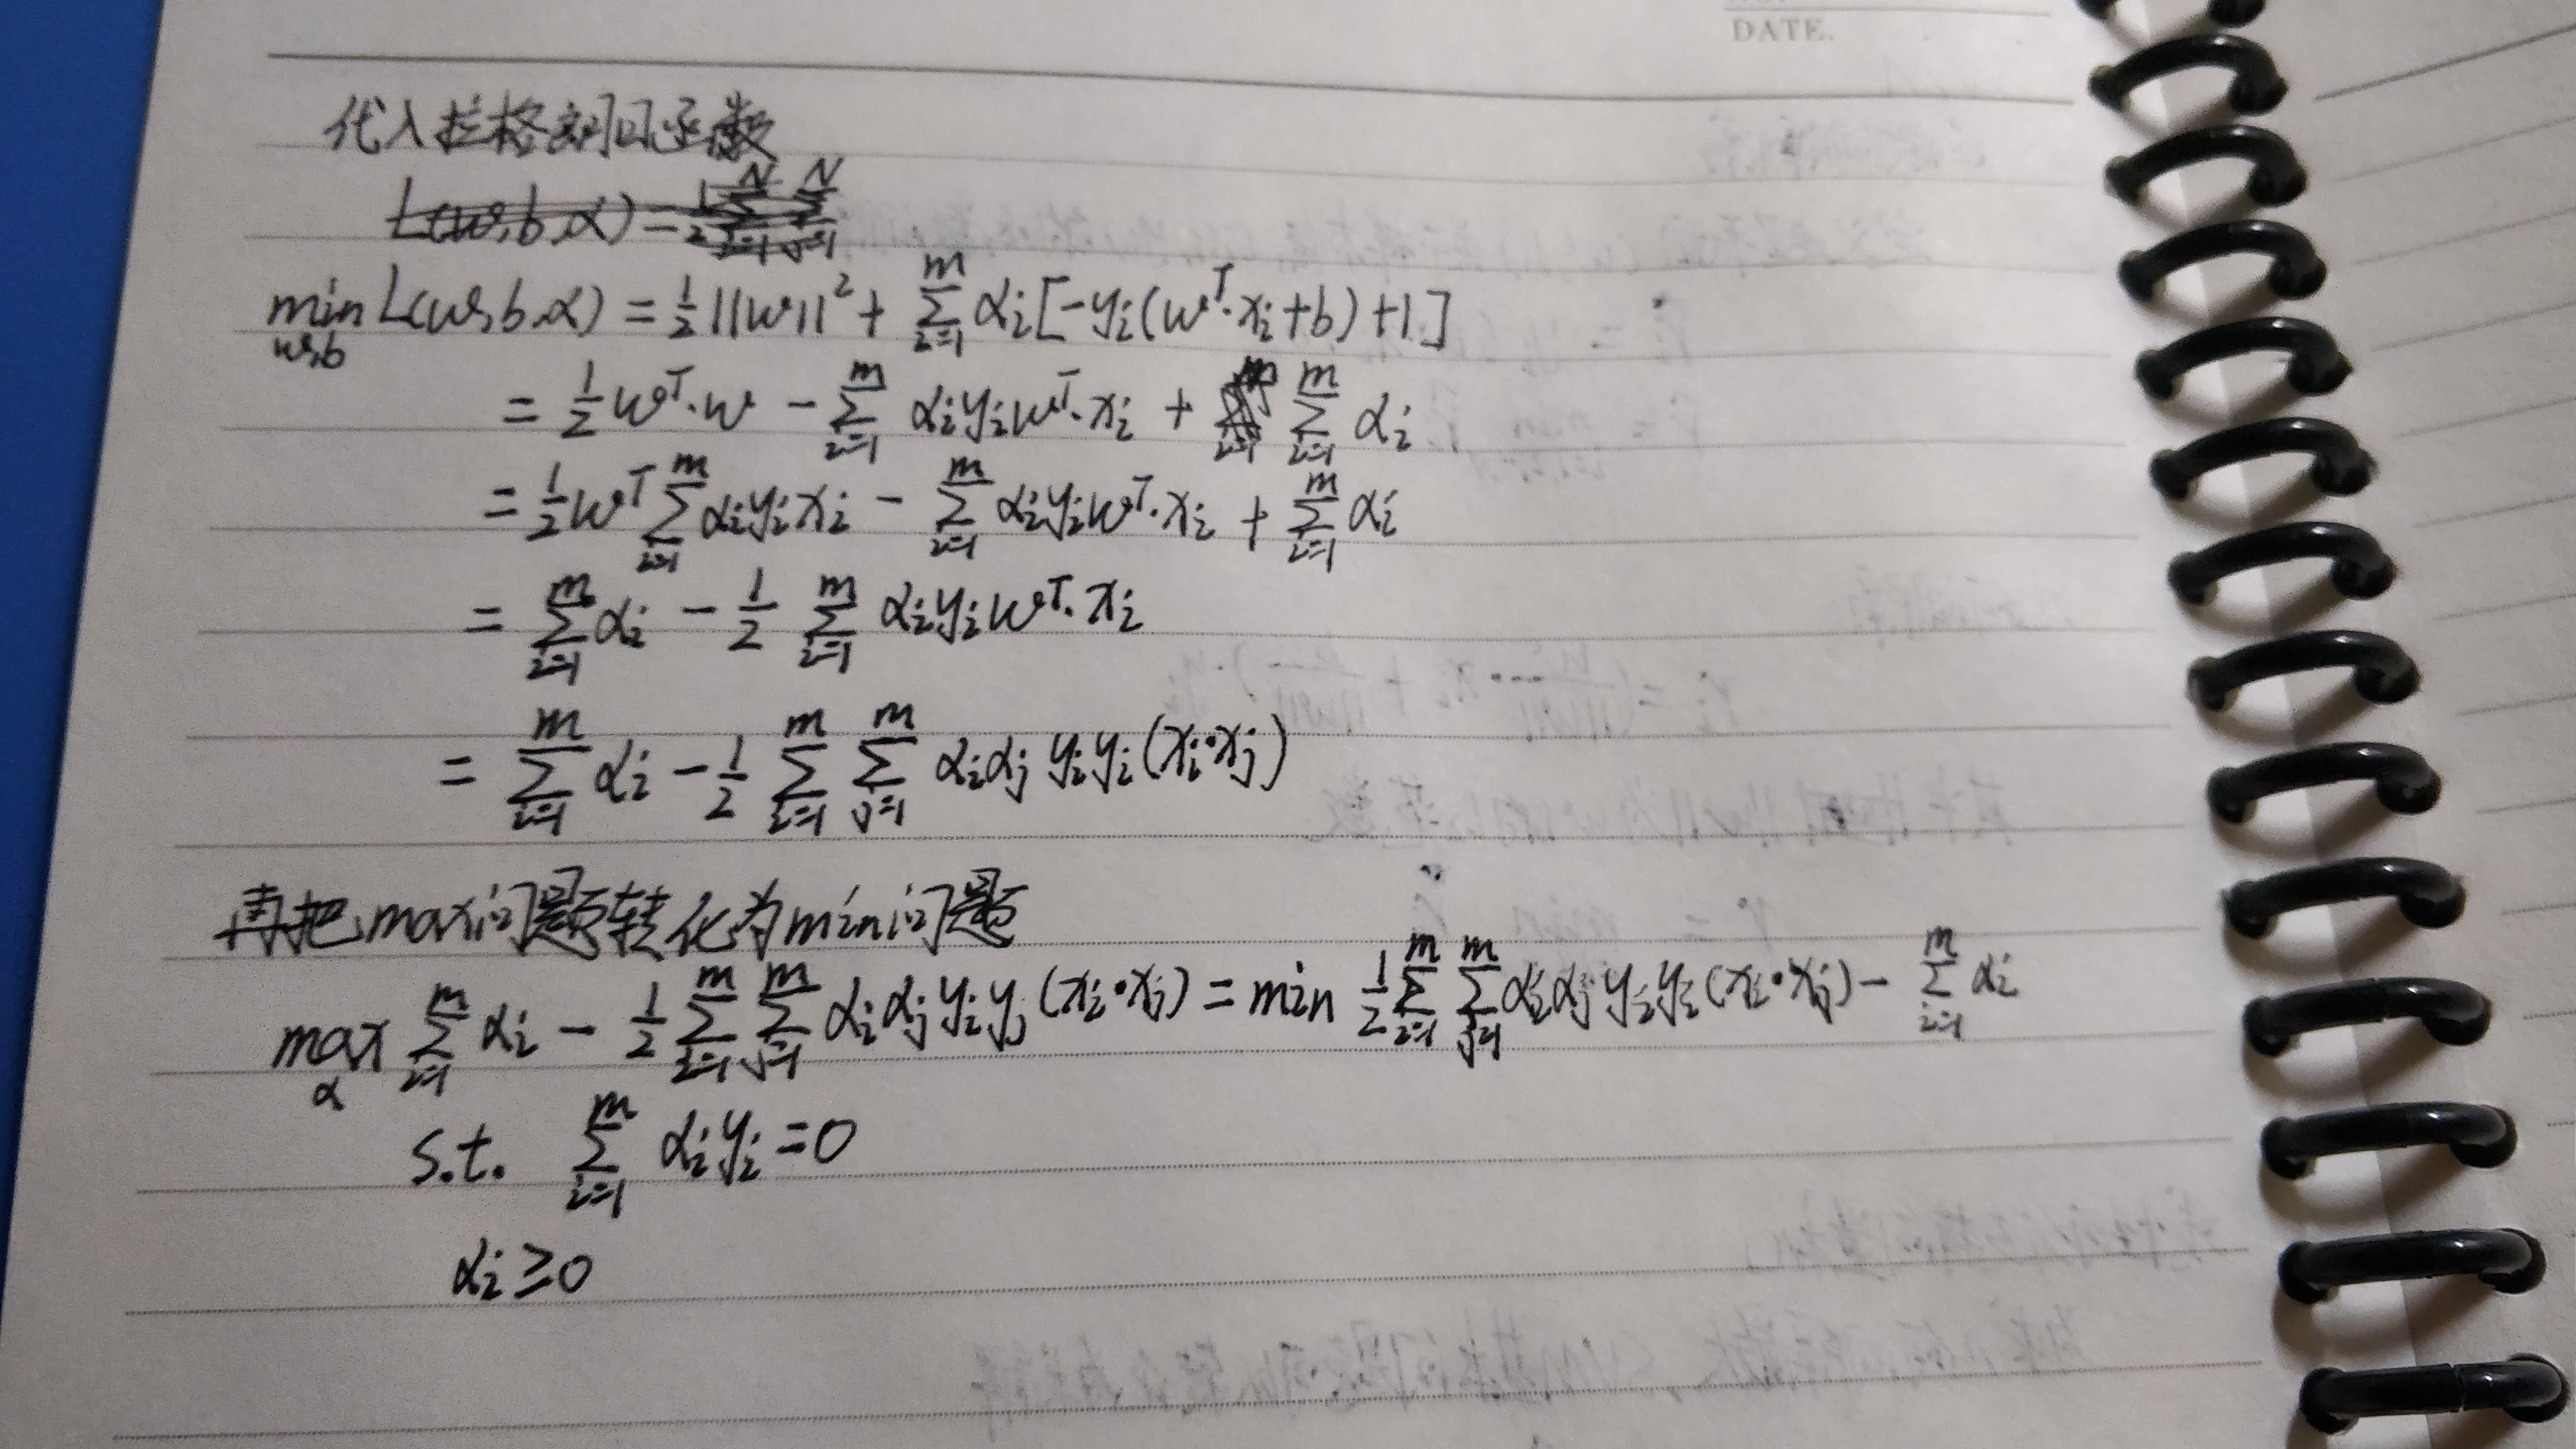 DATE.
代入拉格朗日函数
L(w,b,α) = 1/2 ∑_{i=1}^{N} ∑_{j=1}^{N}
min_{w,b} L(w,b,α) = 1/2 ||w||² + ∑_{i=1}^{m} αi[-yi(w^T·xi+b)+1]
= 1/2 w^T·w - ∑_{i=1}^{m} αiyiw^T·xi + ∑_{i=1}^{m} αi
= 1/2 w^T ∑_{i=1}^{m} αiyixi - ∑_{i=1}^{m} αiyiw^T·xi + ∑_{i=1}^{m} αi
= ∑_{i=1}^{m} αi - 1/2 ∑_{i=1}^{m} αiyiw^T·xi
= ∑_{i=1}^{m} αi - 1/2 ∑_{i=1}^{m} ∑_{j=1}^{m} αiαj yiyi(xi·xj)
再把max问题转化为min问题
max_α ∑_{i=1}^{m} αi - 1/2 ∑_{i=1}^{m} ∑_{j=1}^{m} αiαjyiyj(xi·xj) = min 1/2 ∑_{i=1}^{m} ∑_{j=1}^{m} αiαjyiyi(xi·xj) - ∑_{i=1}^{m} αi
s.t. ∑_{i=1}^{m} αiyi=0
αi≥0